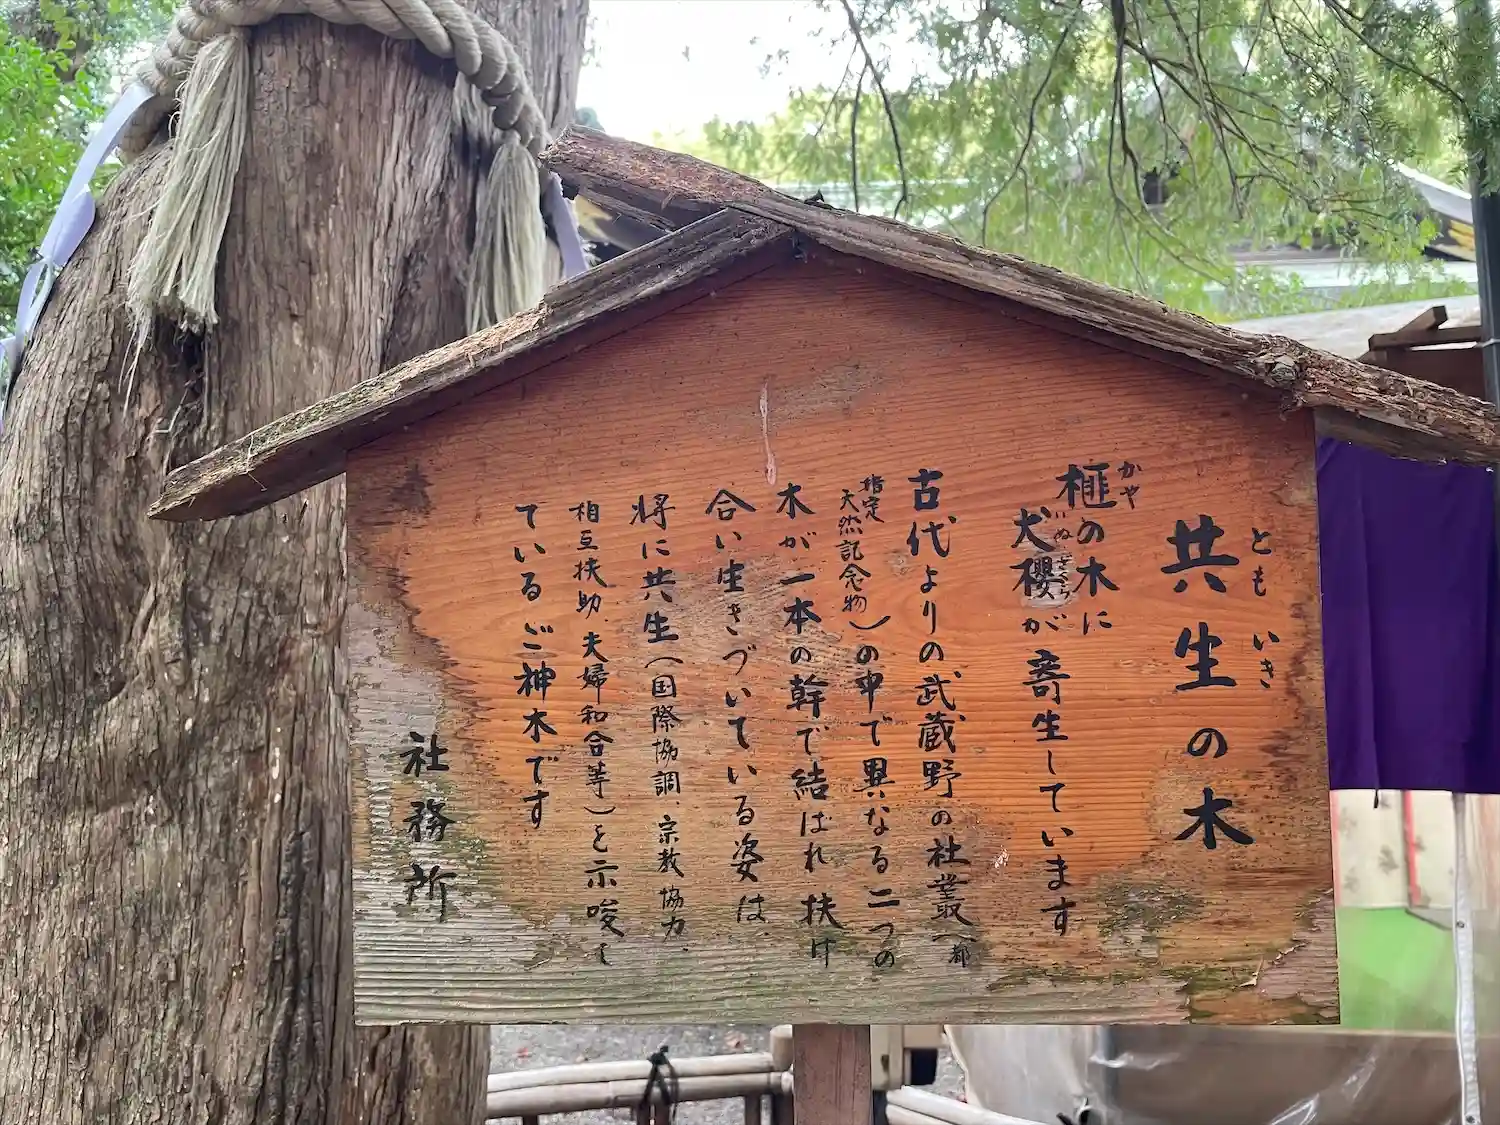 共生の木
ともいき
榧の木に
かや
犬櫻が寄生しています
いぬざくら
古代よりの武蔵野の社叢（都
指定
天然記念物）の中で異なる二つの
木が一本の幹で結ばれ扶け
合い生きづいている姿は、
将に共生（国際協調、宗教協力、
相互扶助、夫婦和合等）を示唆し
ているご神木です
社務所